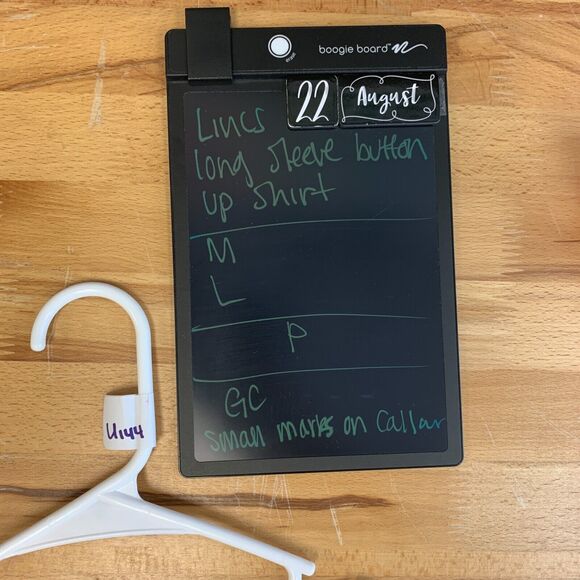 boogie board™
erase
22 August
Lincs
long sleeve button
up shirt
M
L
P
GC
small marks on Collar
U144